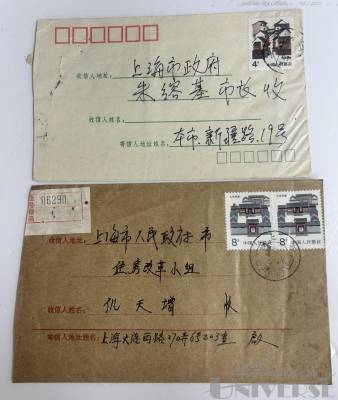 4分
收信人地址:
上海市政府
朱镕基市长 收
收信人姓名:
寄信人地址姓名:
本市.新疆路.19号
06290
8分 中国人民邮政
8分 中国人民邮政
收信人地址:
上海市人民政府 市
住房改革小组
收信人姓名:
仇天增 收
寄信人地址姓名:
上海大连西路270弄65号203室 启
UNIVERSE